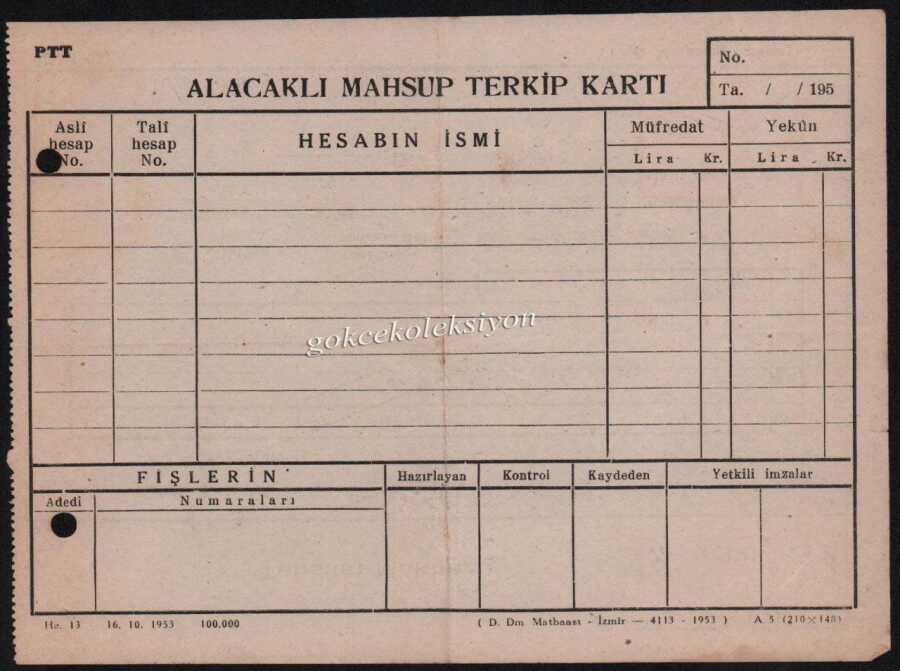 PTT
No.
ALACAKLI MAHSUP TERKİP KARTI
Ta. / / 195
Aslî hesap No.
Talî hesap No.
HESABIN İSMİ
Müfredat
Yekûn
Lira Kr.
Lira Kr.
gokcekoleksiyon
FİŞLERİN
Hazırlayan
Kontrol
Kaydeden
Yetkili imzalar
Adedi
Numaraları
He. 13 16. 10. 1953 100,000
( D. Dm Matbaası - İzmir — 4113 - 1953 ) A 5 (210×148)